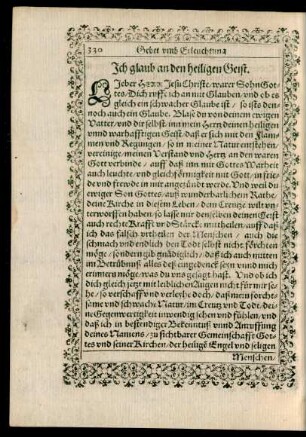 330 Gebet vnd Erleuchtung
Ich glaub an den heiligen Geist.
LIeber HERR Jesu Christe, warer Sohn Got-
tes, Dich ruffe ich an mit Glauben, vnd ob es
gleich ein schwacher Glaube ist / so ists den-
noch auch ein Glaube, Blase du von deinem ewigen
Vatter, vnd dir selbst, inn mein Hertz deinen heiligen
vnnd warhafftigen Geist, daß er sich mit den Flam-
men vnd Regungen / so in meiner Natur entstehen,
vereinige, meinen Verstand vnd Hertz an den waren
Gott verbinde / auff daß inn mir Gottes Warheit
auch leuchte, vnd gleichförmigkeit mit Gott, in frie-
de vnd frewde in mir angezündt werde. Vnd weil du
ewiger Son Gottes, auß wunderbarlichem Rathe,
deine Kirche in diesem Leben / dem Creutze wilt vn-
terworffen haben, so lasse mir denselben deinen Geist
auch rechte Krafft vnd Stärck mittheilen, auff daß
ich das falsch vrtheilen der Menschen / auch die
schmach vnd endlich den Todt selbst nicht förchten
möge / sondern gib gnädiglich, daß ich auch mitten
im Betrübnuß alles deß eingedenck sein vnd mich
erinnern möge, was du vns gesagt hast. Vnd ob ich
dich gleich jetzt mit leiblichen Augen nicht für mir se-
he / so verschaff vnd verleihe doch, daß meine forchtsa-
me vnd schwache Natur, im Creutz vnd Todt, dei-
ne Gegenwertigkeit inwendig sehen vnd fühlen, vnd
daß ich in bestendiger Bekentnuß vnnd Anruffung
deines Namens, zu sichtbarer Gemeinschafft Got-
tes vnd seiner Kirchen, der heiligẽ Engel vnd seligen
Menschen /